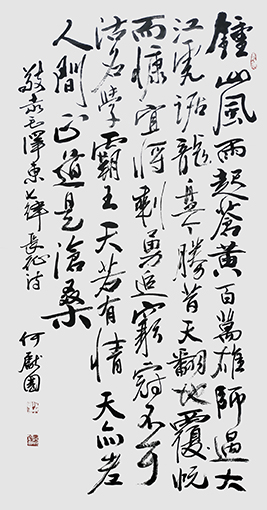 鍾山風雨起蒼黃百萬雄師過大
江虎踞龍盤今勝昔天翻地覆慨
而慷宜將剩勇追窮寇不可
沽名學霸王天若有情天亦老
人間正道是滄桑
敬录毛澤東七律長征诗
何獻國